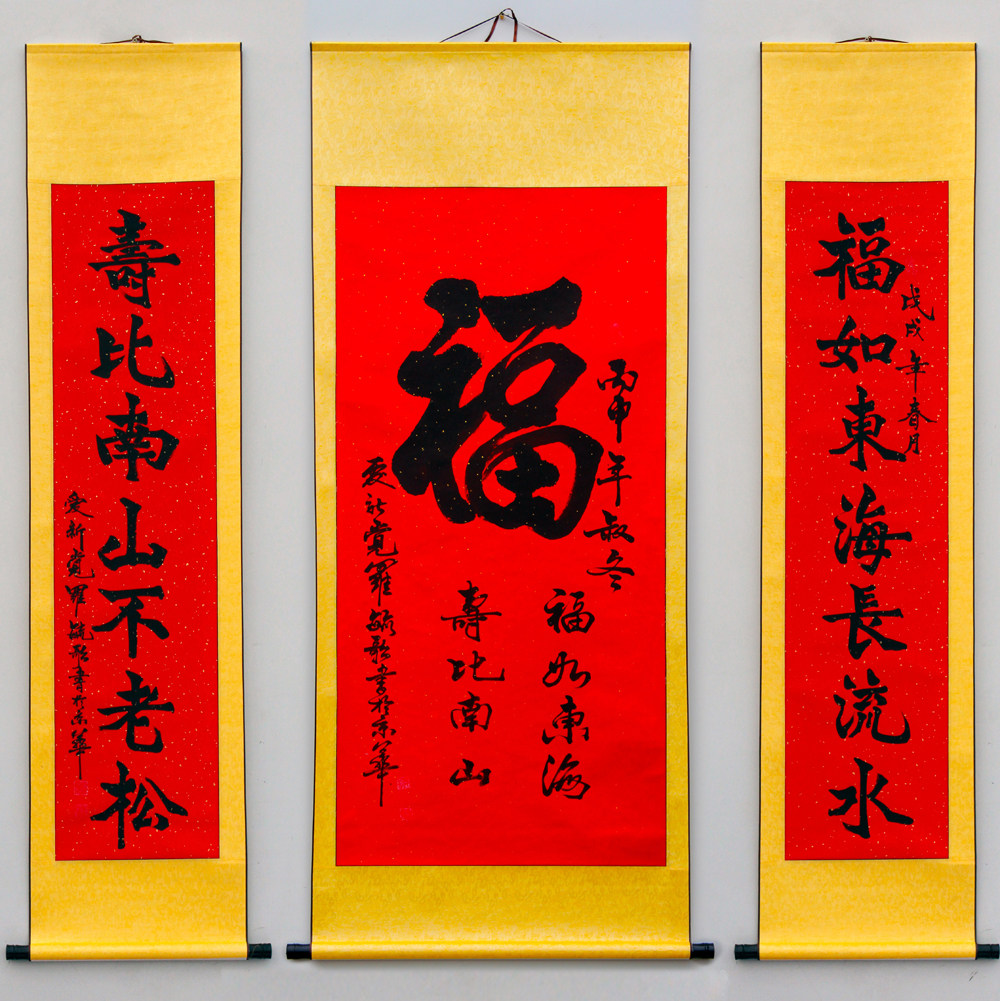 戊戌年春月
福如東海長流水
丙申年叔冬
福
福如東海
壽比南山
愛新覺羅毓歌書於京華
壽比南山不老松
愛新覺羅毓歌書於京華